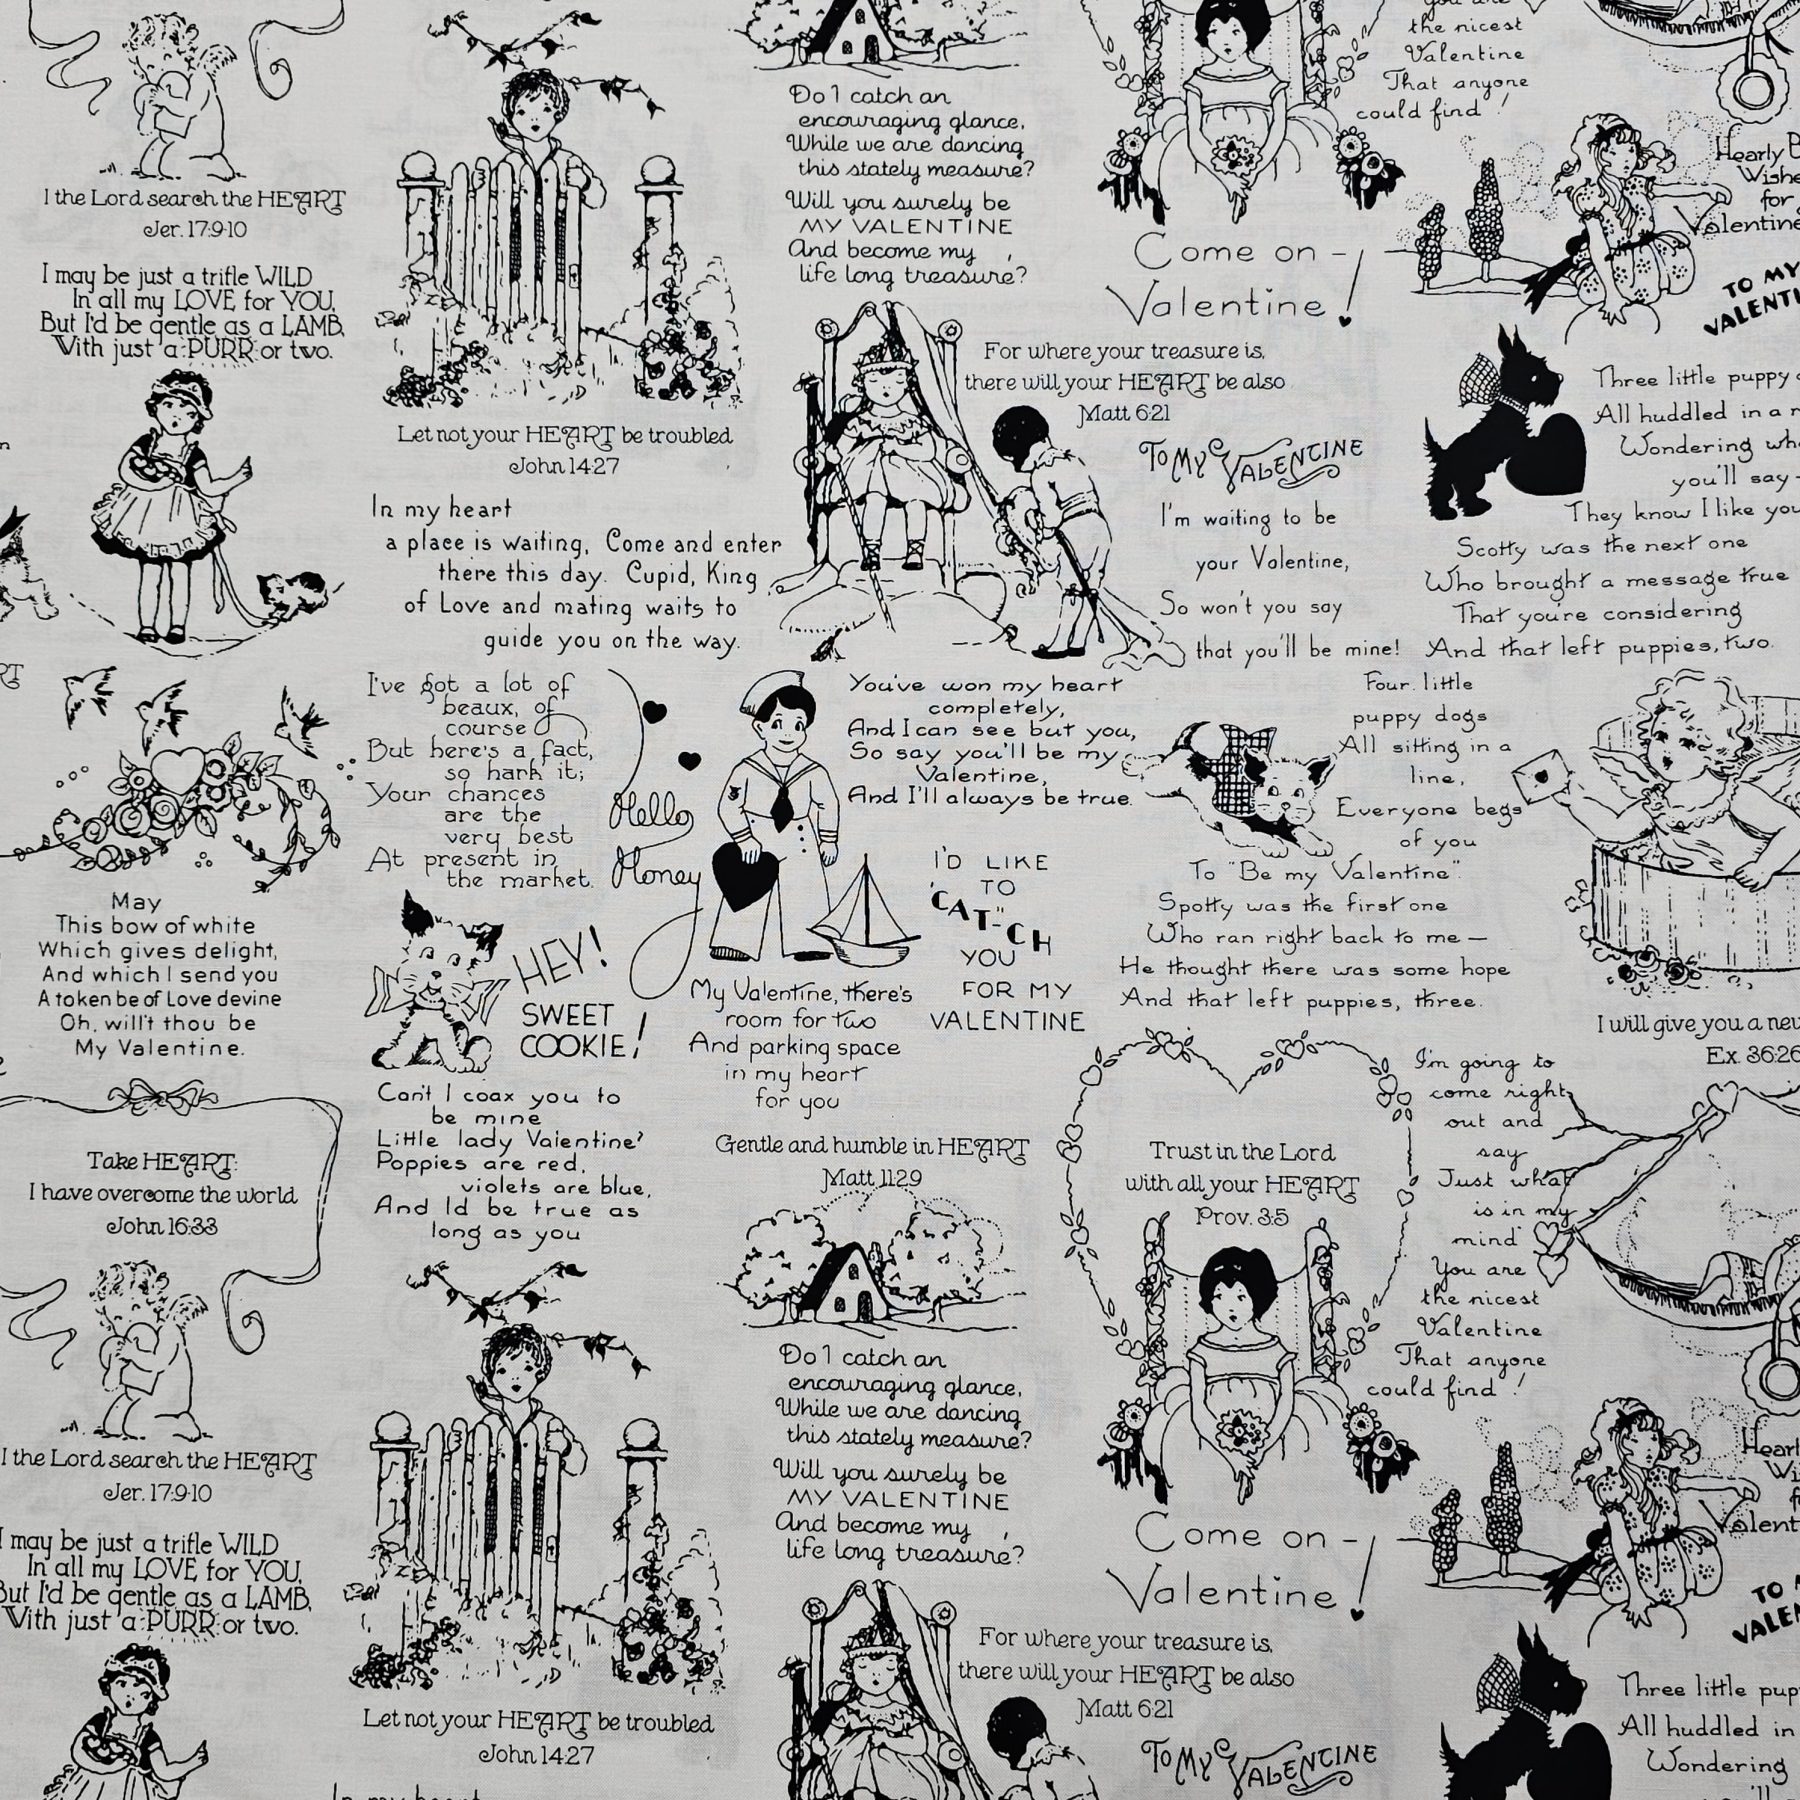 I the Lord search the HEART
Jer. 17:9-10
I may be just a trifle WILD
In all my LOVE for YOU,
But I'd be gentle as a LAMB,
With just a PURR or two.
May
This bow of white
Which gives delight,
And which I send you
A token be of Love devine
Oh, will't thou be
My Valentine.
Take HEART:
I have overcome the world
John 16:33
I the Lord search the HEART
Jer. 17:9-10
I may be just a trifle WILD
In all my LOVE for YOU,
But I'd be gentle as a LAMB,
With just a PURR or two.
Let not your HEART be troubled
John 14:27
In my heart
a place is waiting, Come and enter
there this day. Cupid, King
of Love and mating waits to
guide you on the way.
I've got a lot of
beaux, of
course
But here's a fact,
so hark it;
Your chances
are the
very best
At present in
the market.
Hello
Honey
HEY!
SWEET
COOKIE!
Can't I coax you to
be mine
Little lady Valentine?
Poppies are red,
violets are blue,
And I'd be true as
long as you
Let not your HEART be troubled
John 14:27
In my heart
Do I catch an
encouraging glance,
While we are dancing
this stately measure?
Will you surely be
MY VALENTINE
And become my
life long treasure?
For where your treasure is,
there will your HEART be also
Matt 6:21
TO MY VALENTINE
I'm waiting to be
your Valentine,
So won't you say
that you'll be mine!
You've won my heart
completely,
And I can see but you,
So say you'll be my
Valentine,
And I'll always be true.
I'D LIKE
TO
"CAT"-CH
YOU
FOR MY
VALENTINE
My Valentine, there's
room for two
And parking space
in my heart
for you
Gentle and humble in HEART
Matt 11:29
Do I catch an
encouraging glance,
While we are dancing
this stately measure?
Will you surely be
MY VALENTINE
And become my
life long treasure?
For where your treasure is,
there will your HEART be also
Matt 6:21
TO MY VALENTINE
You are
the nicest
Valentine
That anyone
could find!
Come on -
Valentine!
Hearly B
Wishe
for
Valentine
TO MY
VALENTI
Three little puppy
All huddled in a
Wondering
you'll say-
They know I like you
Scotty was the next one
Who brought a message true
That you're considering
And that left puppies, two.
Four little
puppy dogs
All sitting in a
line,
Everyone begs
of you
To "Be my Valentine".
Spotty was the first one
Who ran right back to me —
He thought there was some hope
And that left puppies, three.
I will give you a new
Ex. 36:26
Trust in the Lord
with all your HEART
Prov. 3:5
I'm going to
come right
out and
say
Just what
is in my
mind
You are
the nicest
Valentine
That anyone
could find!
Come on -
Valentine!
Hearl
Wi
Valent
TO
VALEN
Three little pup
All huddled in
Wondering